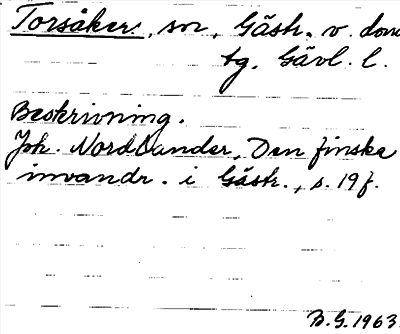 Torsåkers, sn, Gästr. v. dom
tg. Gävl. l.
Beskrivning.
Joh. Nordlander, Den finska
invandr. i Gästr., s. 19 f.
B.G. 1963